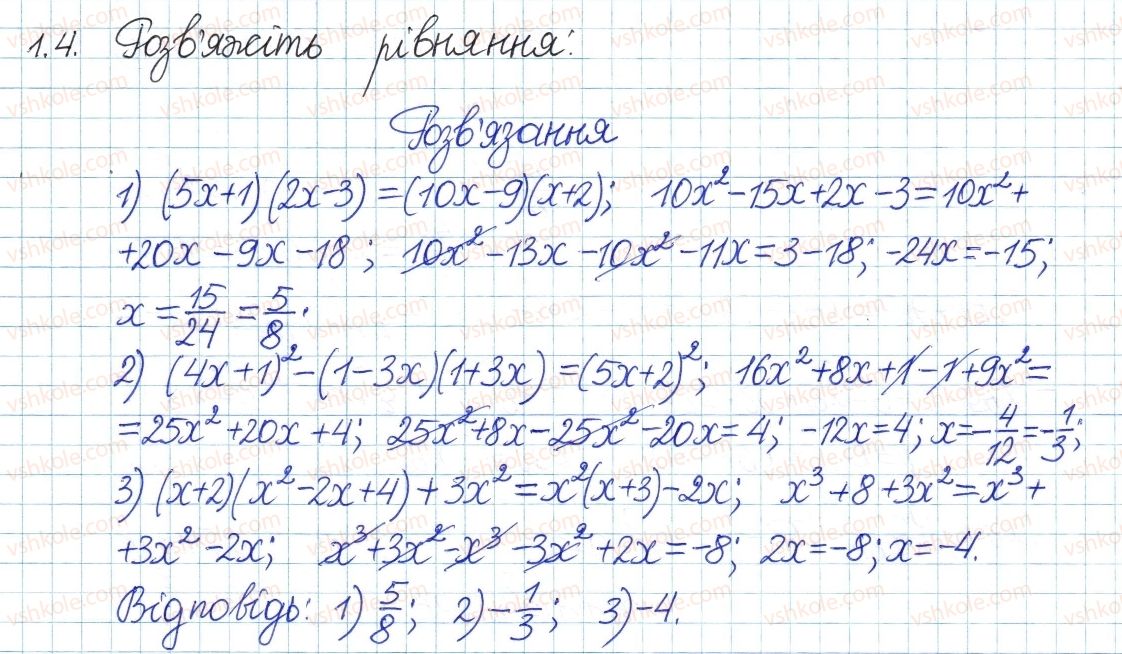 1.4. Розв'яжіть рівняння:
Розв'язання
1) (5x+1)(2x-3)=(10x-9)(x+2); 10x²-15x+2x-3=10x²+
+20x-9x-18; 10x²-13x-10x²-11x=3-18; -24x=-15;
x=15/24=5/8.
2) (4x+1)²-(1-3x)(1+3x)=(5x+2)²; 16x²+8x+1-1+9x²=
=25x²+20x+4; 25x²+8x-25x²-20x=4; -12x=4; x=-4/12=-1/3;
3) (x+2)(x²-2x+4)+3x²=x²(x+3)-2x; x³+8+3x²=x³+
+3x²-2x; x³+3x²-x³-3x²+2x=-8; 2x=-8; x=-4.
Відповідь: 1) 5/8; 2) -1/3; 3) -4.